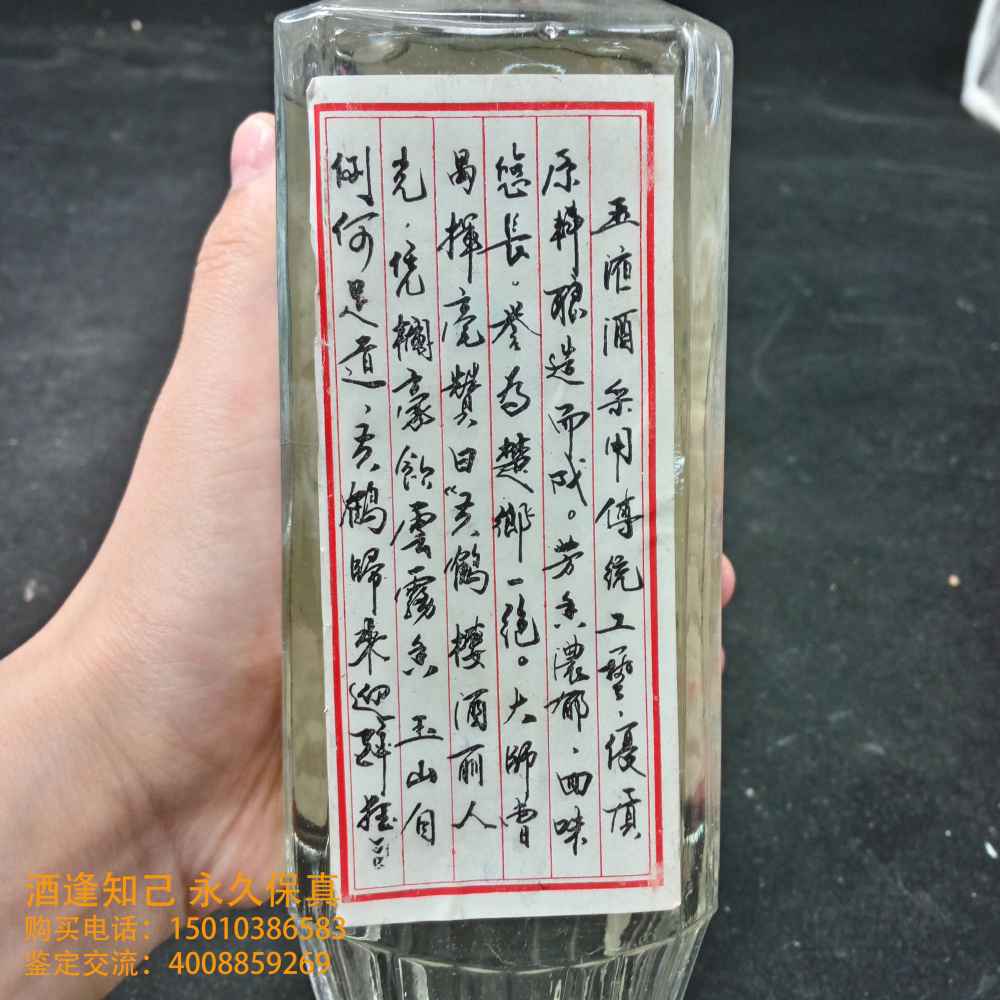 玉液酒采用傳統工藝、優質
原料釀造而成。芳香濃郁、回味
悠長。譽為楚鄉一絕。大師曾
揮毫贊曰“黃鶴樓酒丽人
光、凭欄豪飲雲霧香 玉山自
倒何足道、黃鶴歸來迎群
酒逢知己 永久保真
购买电话：15010386583
鉴定交流：4008859269